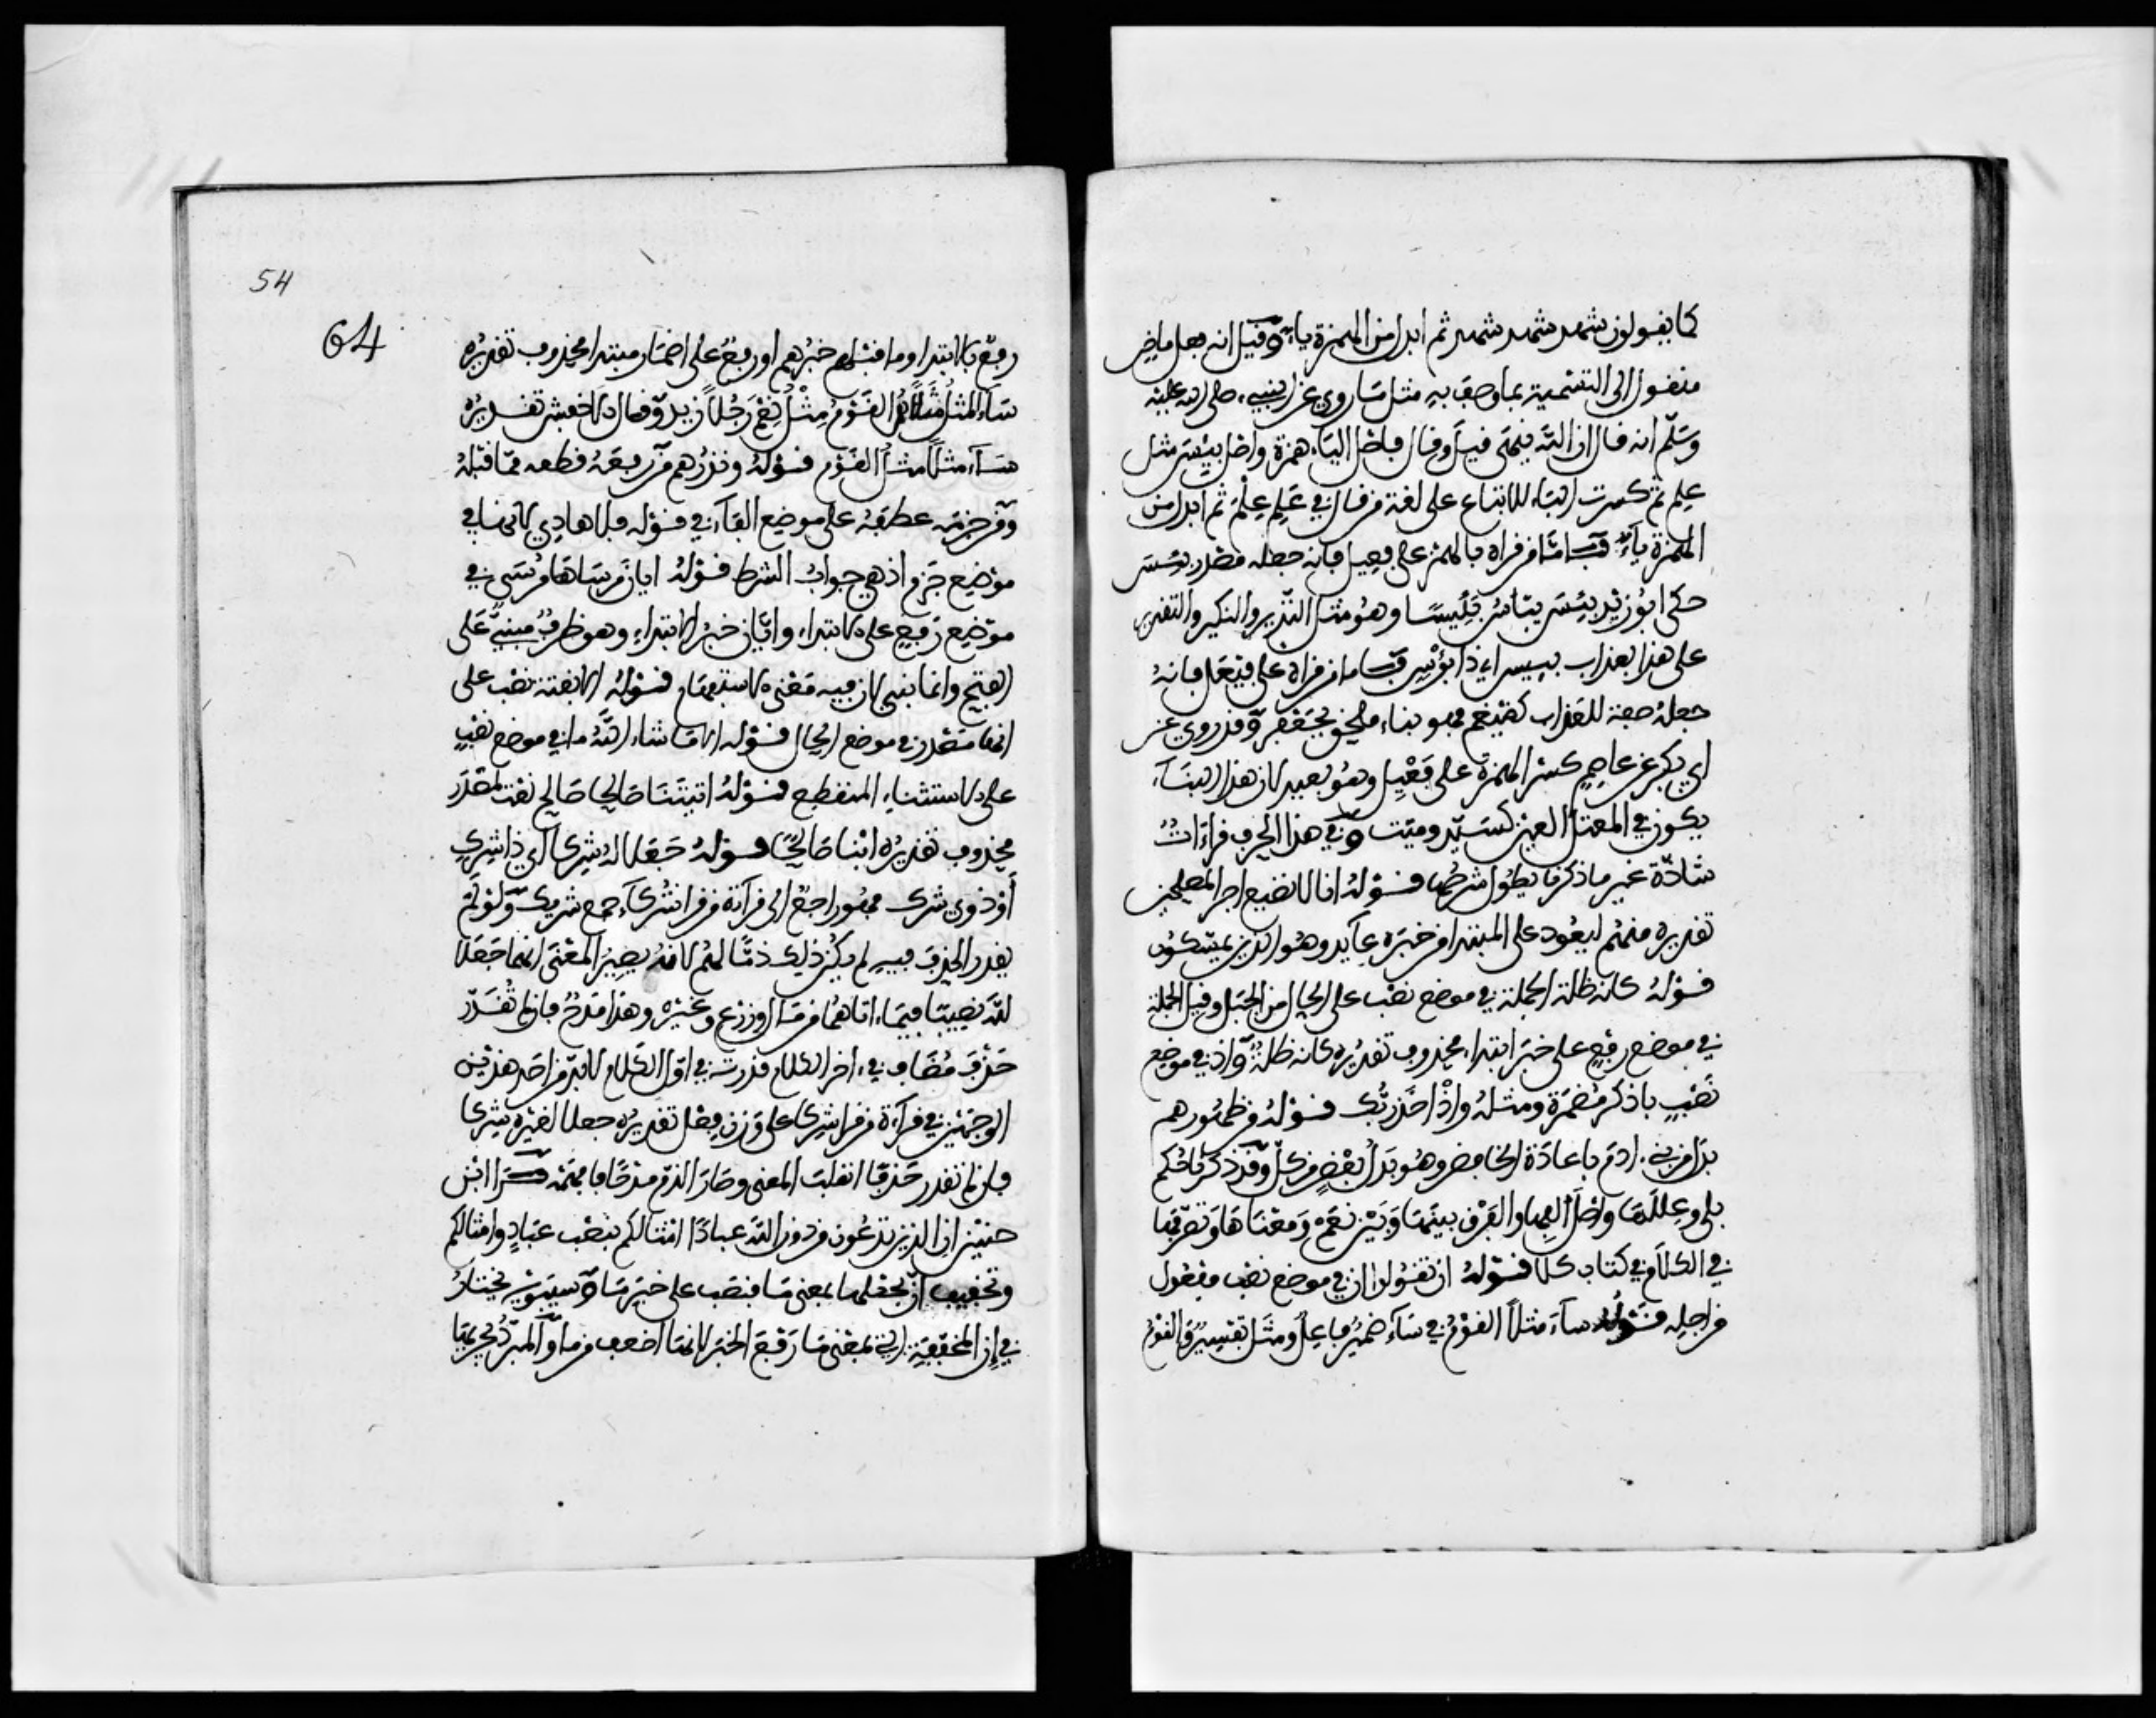 كما يقولون شهد شهد شهد ثم ابدل من الهمزة ياء وقيل انه فعل ماض
منقول الى التسمية بما وصف به مثل ما روي عن النبيء صلى الله عليه
وسلم انه قال ان الله ينهى قيل وقال فاصل الياء همزة واصل بييس مثل
علم ثم كسرت الباء للاتباع على لغة من قال في علم علم ثم ابدل من
الهمزة ياء فاما من قراه بالهمز على فعيل فانه جعله مصدر بئس
حكى ابو زيد بئس يباس بئيسا وهو مثل النذير والنكير والتقدير
على هذا بعذاب بييس اي ذا بؤس فاما من قراه على فيعل فانه
جعله صفة للعذاب كضيغم فهو بناء ملحق بجعفر وقد روي عن
ابي بكر عن عاصم كسر الهمزة على فيعل وهو بعيد لان هذا البناء
يكون في المعتل العين كسيد وميت وفي هذا الحرف قراءات
شاذة غير ما ذكرنا يطول شرحها قوله انا لا نضيع اجر المصلحين
تقديره منهم ليعود على المبتدا من خبره عايد وهو الذين يمسكون
قوله كانه ظلة الجملة في موضع نصب على الحال من الجبل وقيل الجملة
في موضع رفع على خبر ابتداء محذوف تقديره كانه ظلة واذ في موضع
نصب باذكر مضمرة ومثله واذ اخذ ربك قوله من ظهورهم
بدل من بني ادم باعادة الخافض وهو بدل بعض من كل وقد ذكرنا حكم
بلى وعللها واصل الفها والفرق بينها وبين نعم ومعناها وتصرفها
في الكلام في كتاب كلا قوله ان تقولوا ان في موضع نصب مفعول
من اجله قوله ساء مثلا القوم في ساء ضمير فاعل ومثلا تفسير والقوم
54
64
رفع بالابتداء وما قبلهم خبرهم او رفع على اضمار مبتدا محذوف تقديره
ساء المثل مثلا هم القوم مثل نعم رجلا زيد وقال الاخفش تقديره
ساء مثلا مثل القوم قوله ونذرهم من رفعه قطعه مما قبله
ومن جزمه عطفه على موضع الفاء في قوله فلا هادي لانها في
موضع جزم اذ هي جواب الشرط قوله ايان مرساها مرسى في
موضع رفع على الابتداء وايان خبر الابتداء وهو ظرف مبني على
الفتح وانما بني لان فيه معنى الاستفهام قوله الا بغتة نصب على
انها مصدر في موضع الحال قوله الا ما شاء الله ما في موضع نصب
على الاستثناء المنقطع قوله اتيتنا صالحا صالح نعت لمقدر
محذوف تقديره ابنا صالحا قوله جعلا له شركا اي ذا شرك
او ذوي شرك فهو راجع الى قراءة من قرا شركاء جمع شريك ولو لم
يقدر الحذف فيه لم يكن ذلك ذما لهم لانه يصير المعنى انهما جعلا
لله نصيبا فيما اتاهما من مال وزرع وغيره وهذا مدح فان لم تقدر
حذف مضاف في اخر الكلام قدرته في اول الكلام لا بد من احد هذين
الوجهين في قراءة من قرا شركا على وزن فعل تقديره جعلا لغيره شركا
فان لم تقدر حذفا انقلب المعنى وصار الذم مدحا فافهمه قرا ابن
حنين ان الذين تدعون من دون الله عبادا امثالكم بنصب عباد وامثالكم
وتخفيف ان يجعلها بمعنى ما فنصب على خبر ما وسيبويه يختار
في ان المخففة التي بمعنى ما رفع الخبر لانها اضعف من ما والمبرد يجريها